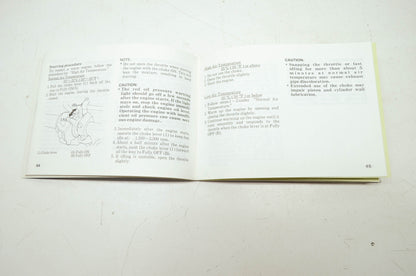 Starting procedure
To restart a warm engine, follow the
procedure for "High Air Temperature."
Normal Air Temperature
1. Pull the choke lever (1) back all the
way to Fully ON (A).
2. Start the engine, leaving the throttle
closed.
(1) Choke lever
(A) Fully ON
(B) Fully OFF
44
NOTE:
Do not open the throttle when starting
the engine with the choke ON. This will
lean the mixture, resulting in hard
starting.
CAUTION:
The red oil pressure warning
light should go off a few seconds
after the engine starts. If the light
stays on, stop the engine immediately
and check engine oil level.
Operating the engine with insufficient
oil pressure can cause serious
engine damage.
3. Immediately after the engine starts,
operate the choke lever (1) to keep fast
idle at:
4. About a half minute after the engine
starts, push the choke lever (1) forward
all the way to Fully OFF (B).
5. If idling is unstable, open the throttle
slightly.
High Air Temperature
1. Do not use the choke.
2. Start the engine, opening the throttle
slightly.
Low Air Temperature
1. Follow steps under "Normal Air
Temperature."
2. Warm up the engine by opening and
closing the throttle slightly.
3. Continue warming up the engine until it
runs smoothly and responds to the
throttle when the choke lever is at Fully
OFF (B).
CAUTION:
Snapping the throttle or fast
idling for more than about 5
minutes at normal air
temperature may cause exhaust
pipe discoloration.
Extended use of the choke may
impair piston and cylinder wall
lubrication.
45